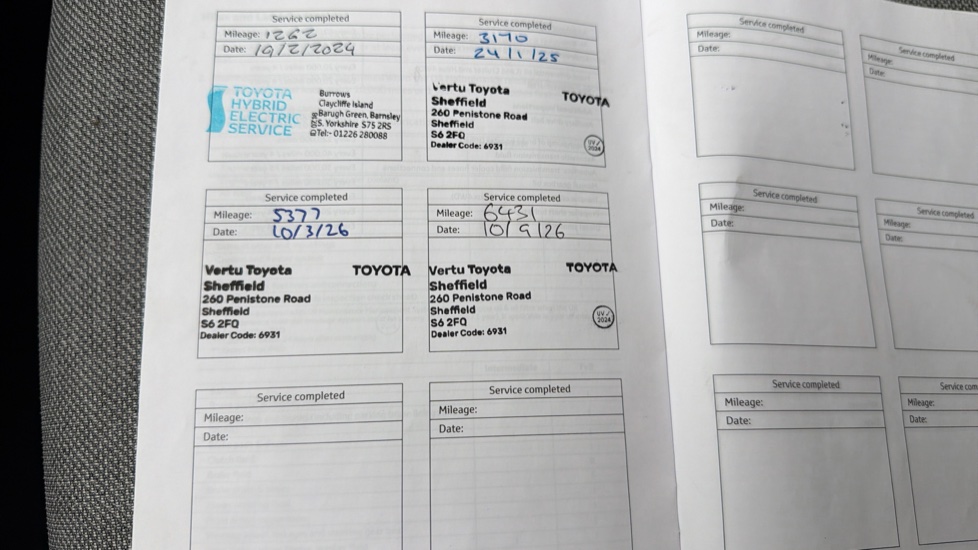 Service completed
Mileage: 1262
Date: 19/2/2024
TOYOTA
HYBRID
ELECTRIC
SERVICE
Burrows
Claycliffe Island
Barugh Green, Barnsley
S. Yorkshire S75 2RS
Tel:- 01226 280088
Service completed
Mileage: 3170
Date: 24/1/25
Vertu Toyota
Sheffield
260 Penistone Road
Sheffield
S6 2FQ
Dealer Code: 6931
TOYOTA
UV✓
2024
Service completed
Mileage: 5377
Date: 10/3/26
Vertu Toyota
Sheffield
260 Penistone Road
Sheffield
S6 2FQ
Dealer Code: 6931
TOYOTA
Service completed
Mileage: 6431
Date: 10/9/26
Vertu Toyota
Sheffield
260 Penistone Road
Sheffield
S6 2FQ
Dealer Code: 6931
TOYOTA
UV✓
2024
Service completed
Mileage:
Date:
Service completed
Mileage:
Date:
Service completed
Mileage:
Date:
Service completed
Mileage:
Date:
Service completed
Mileage:
Date:
Service completed
Mileage:
Date:
Service completed
Mileage:
Date:
Service com
Mileage:
Date: